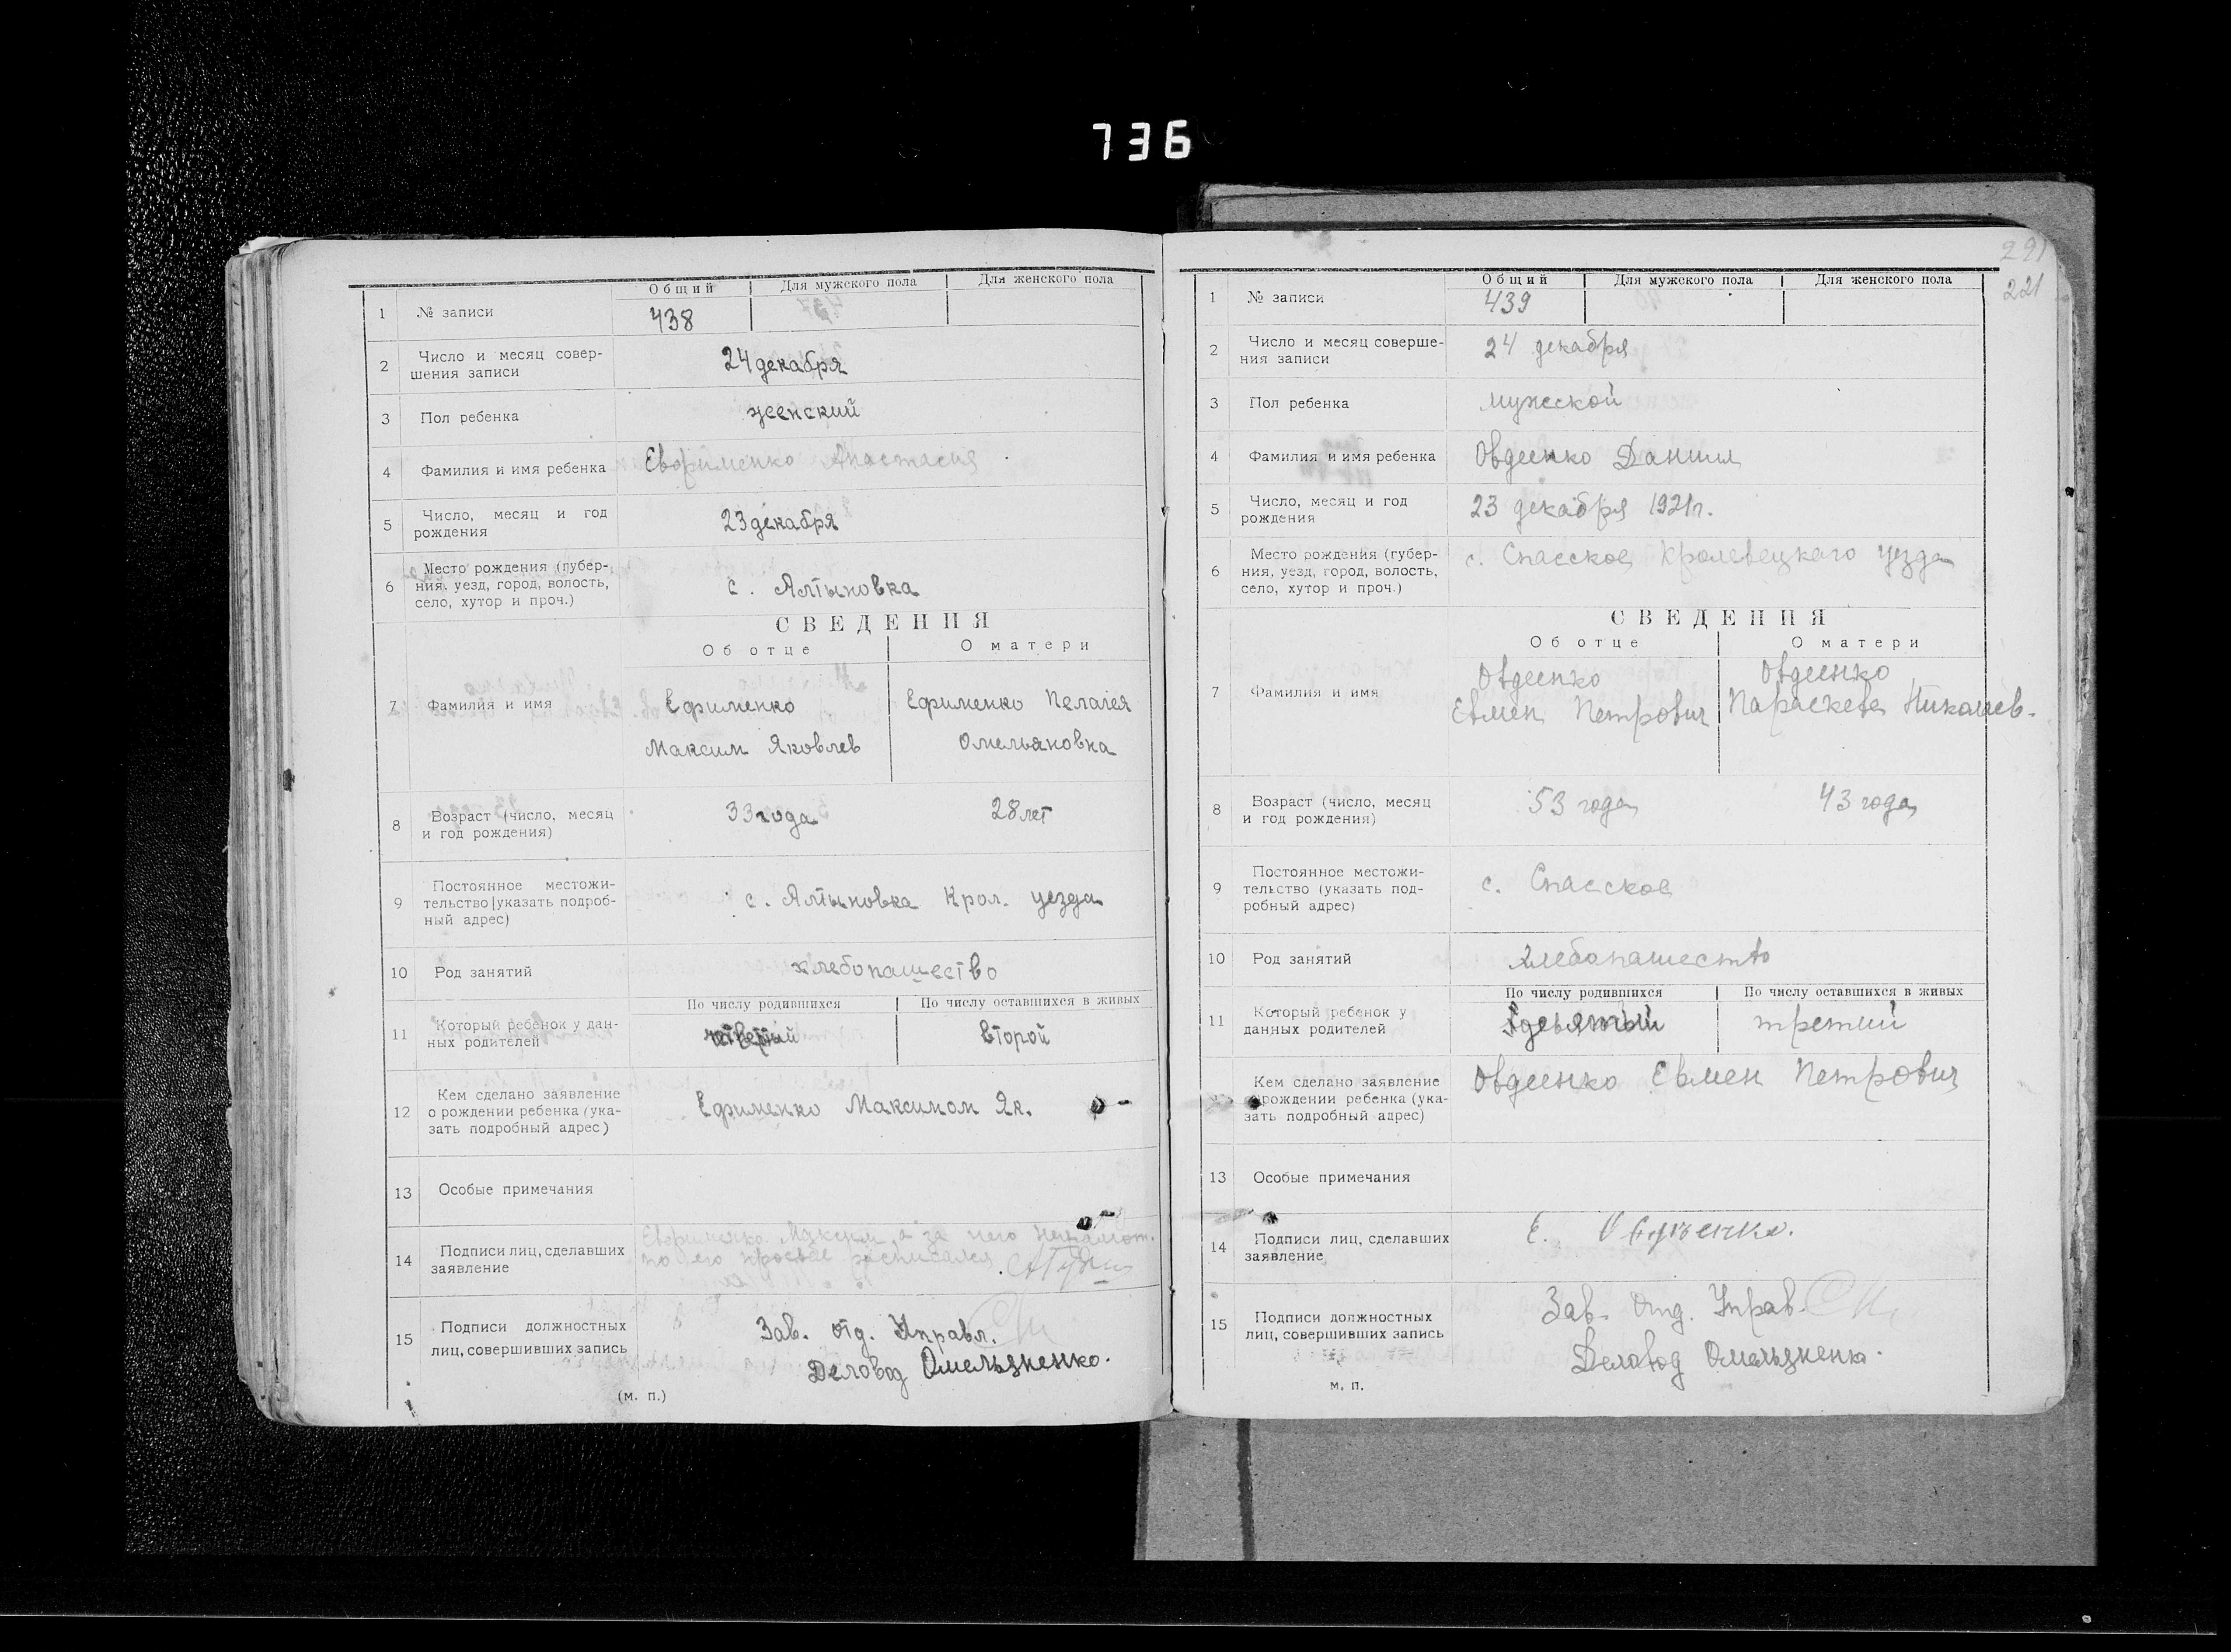 736
Общий Для мужского пола Для женского пола
1 № записи 438
2 Число и месяц совер-
шения записи 24 декабря
3 Пол ребенка женский
4 Фамилия и имя ребенка Евфименко Анастасия
5 Число, месяц и год
рождения 23 декабря
6 Место рождения (губер-
ния, уезд, город, волость,
село, хутор и проч.) с. Алтыновка
СВЕДЕНИЯ
Об отце О матери
7 Фамилия и имя
Ефименко Ефименко Пелагея
Максим Яковлев Омельяновка
8 Возраст (число, месяц
и год рождения) 33 года 28 лет
9 Постоянное местожи-
тельство (указать подроб-
ный адрес) с. Алтыновка Крол. уезда
10 Род занятий хлебопашество
По числу родившихся По числу оставшихся в живых
11 Который ребенок у дан-
ных родителей четвертый второй
12 Кем сделано заявление
о рождении ребенка (ука-
зать подробный адрес) Ефименко Максимом Як.
13 Особые примечания
14 Подписи лиц, сделавших
заявление
Евфименко Максим, а за него неграмот.
по его просьбе расписался
15 Подписи должностных
лиц, совершивших запись
Зав. отд. Управл.
Деловод Омельяненко.
(м. п.)
291
221
Общий Для мужского пола Для женского пола
1 № записи 439
2 Число и месяц соверше-
ния записи 24 декабря
3 Пол ребенка мужской
4 Фамилия и имя ребенка Овдеенко Даниил
5 Число, месяц и год
рождения 23 декабря 1921 г.
6 Место рождения (губер-
ния, уезд, город, волость,
село, хутор и проч.) с. Спасское Кролевецкаго уезда
СВЕДЕНИЯ
Об отце О матери
7 Фамилия и имя
Овдеенко Овдеенко
Евмен Петрович Параскева Николаев.
8 Возраст (число, месяц
и год рождения) 53 года 43 года
9 Постоянное местожи-
тельство (указать под-
робный адрес) с. Спасское
10 Род занятий хлебопашество
По числу родившихся По числу оставшихся в живых
11 Который ребенок у
данных родителей девятый третий
Кем сделано заявление
о рождении ребенка (ука-
зать подробный адрес) Овдеенко Евмен Петрович
13 Особые примечания
14 Подписи лиц, сделавших
заявление Е.
15 Подписи должностных
лиц, совершивших запись
Зав. Отд. Управ.
Деловод Омельяненко.
м. п.